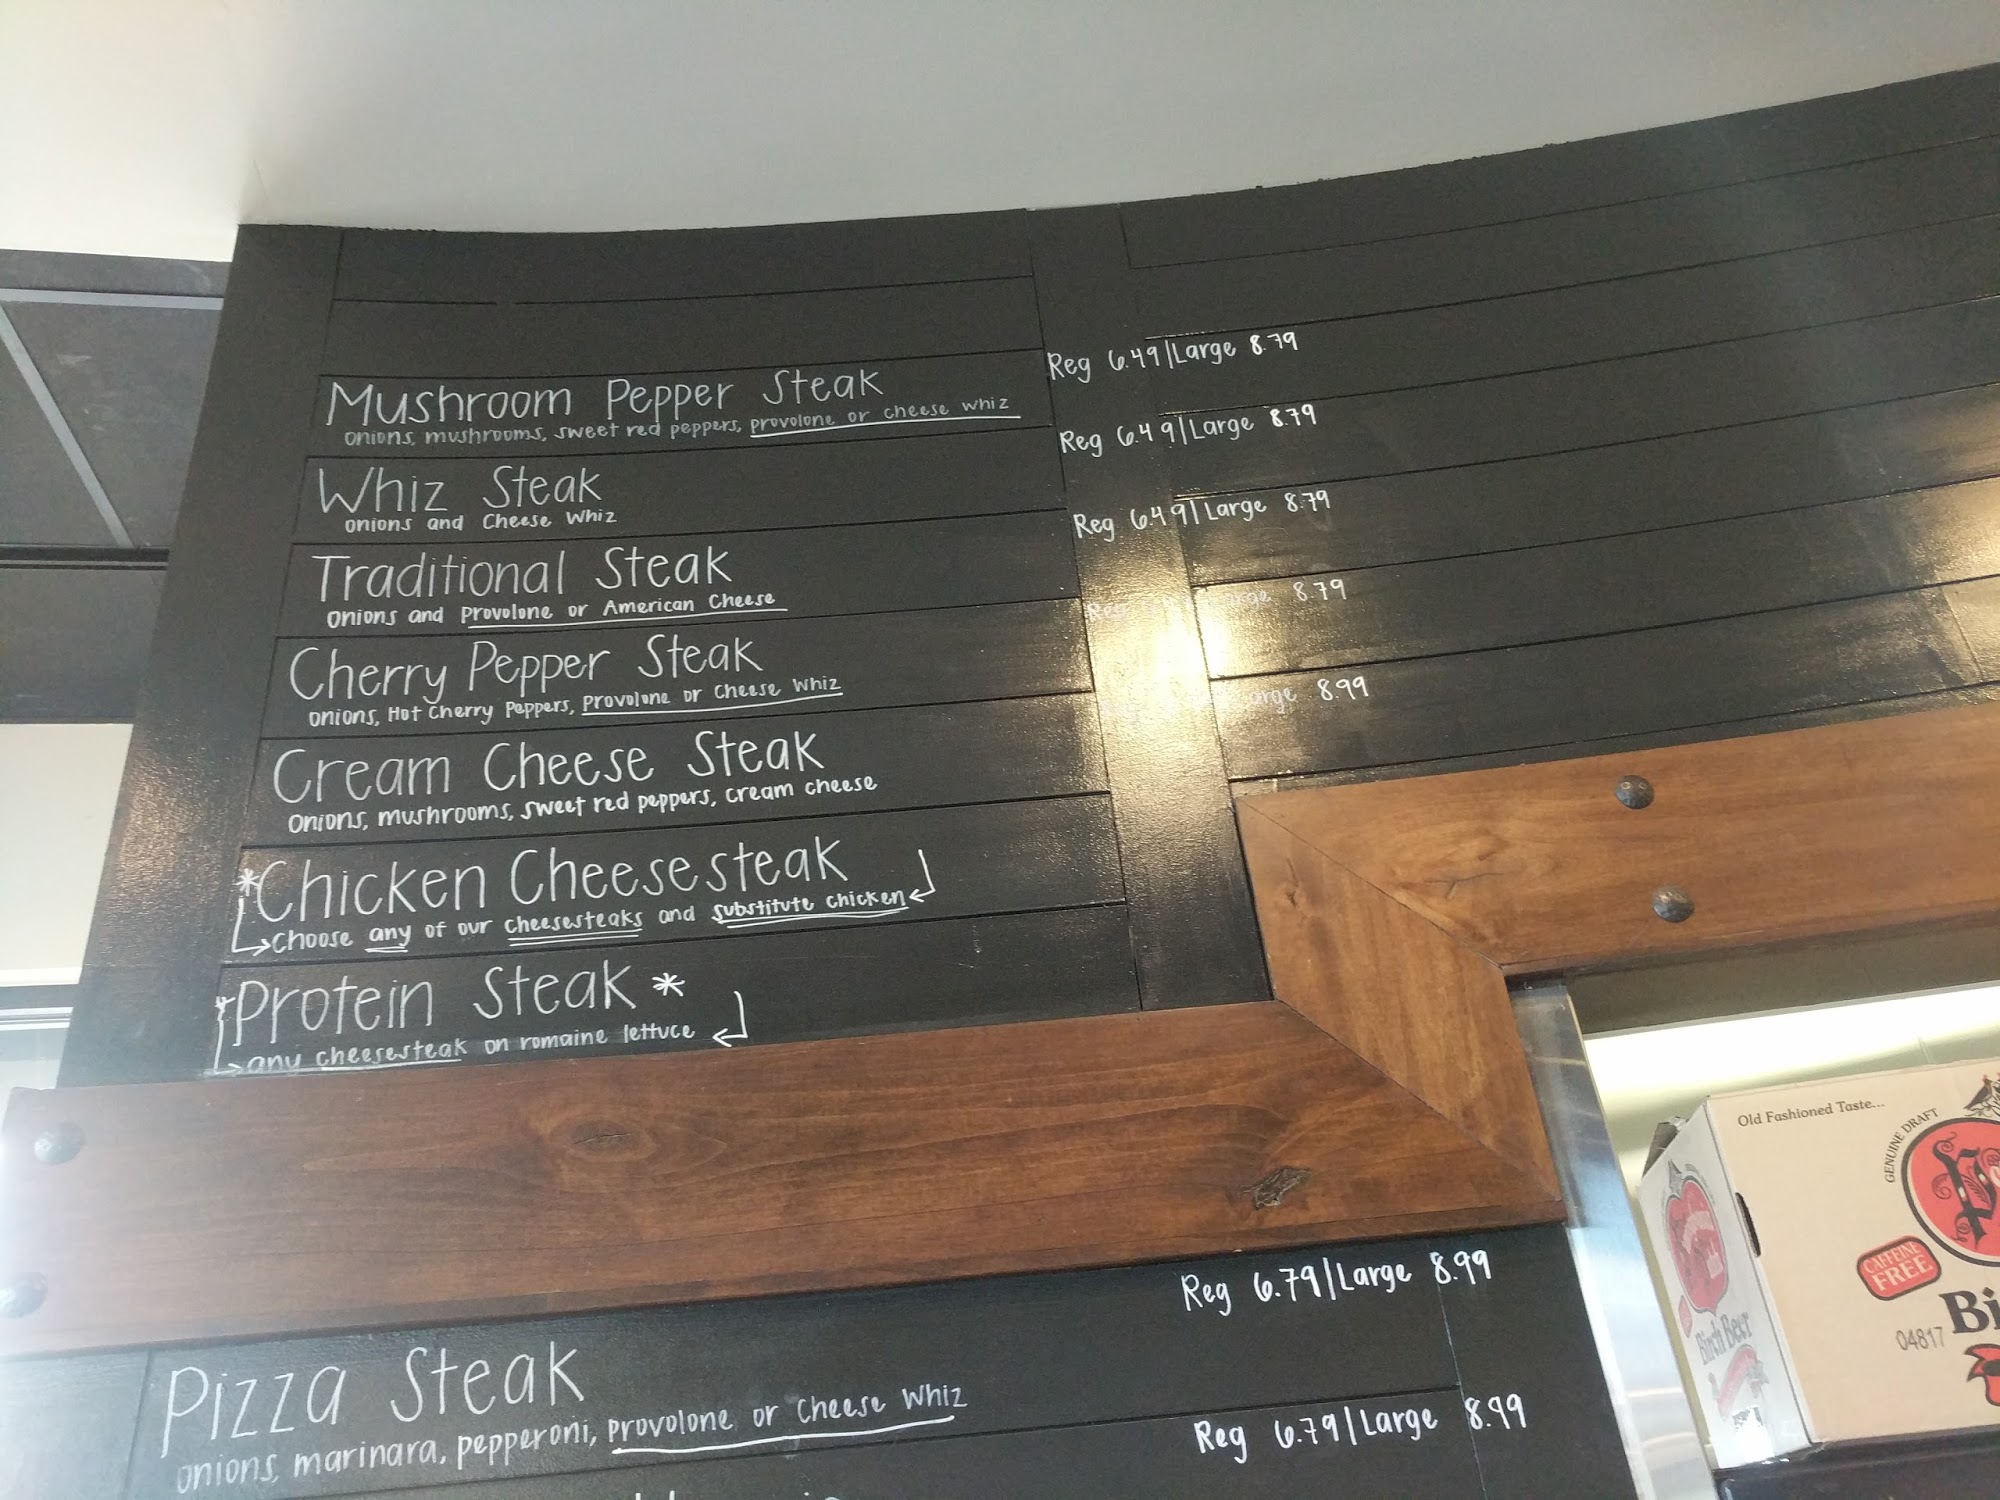 Mushroom Pepper Steak Reg 6.49/Large 8.79
onions, mushrooms, sweet red peppers, provolone or cheese whiz
Whiz Steak Reg 6.49/Large 8.79
onions and Cheese Whiz
Traditional Steak Reg 6.49/Large 8.79
onions and Provolone or American Cheese
Cherry Pepper Steak Reg Large 8.79
onions, Hot Cherry Peppers, Provolone or Cheese Whiz
Cream Cheese Steak Large 8.99
onions, mushrooms, sweet red peppers, cream cheese
*Chicken Cheesesteak
choose any of our cheesesteaks and substitute chicken
*Protein Steak*
any cheesesteak on romaine lettuce
Pizza Steak Reg 6.79/Large 8.99
onions, marinara, pepperoni, provolone or Cheese Whiz
Reg 6.79/Large 8.99
Old Fashioned Taste...
GENUINE DRAFT
CAFFEINE
FREE
04817
Bi
Birch Beer